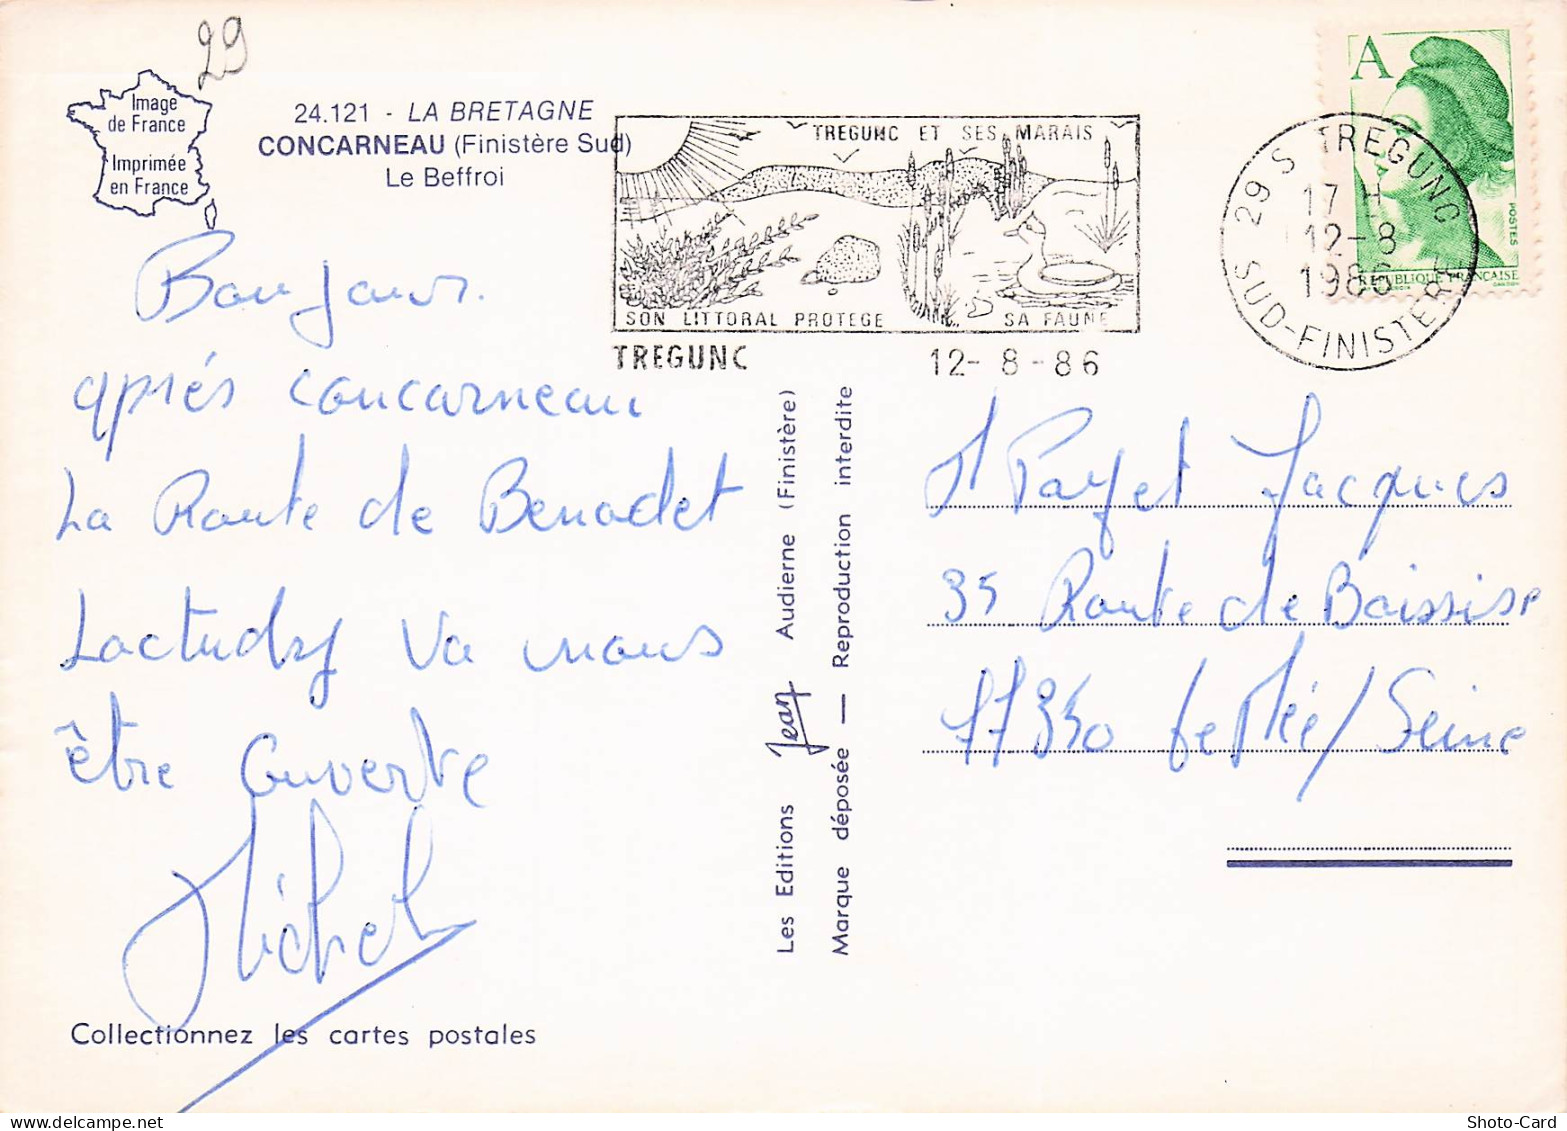 29
Image
de France
Imprimée
en France
24.121 - LA BRETAGNE
CONCARNEAU (Finistère Sud)
Le Beffroi
TREGUNC ET SES MARAIS
SON LITTORAL PROTEGE SA FAUNE
TREGUNC 12-8-86
A
POSTES
REPUBLIQUE FRANÇAISE
29 S TREGUNC
17 H
12-8
1986
SUD-FINISTERE
Bonjour.
après concarneau
La Route de Benodet
Loctudy va nous
être ouverte
Michel
Collectionnez les cartes postales
Les Editions Jean Audierne (Finistère)
Marque déposée — Reproduction interdite
Mr Payet Jacques
35 Route de Boissise
77350 le Mée/Seine
Shoto-Card